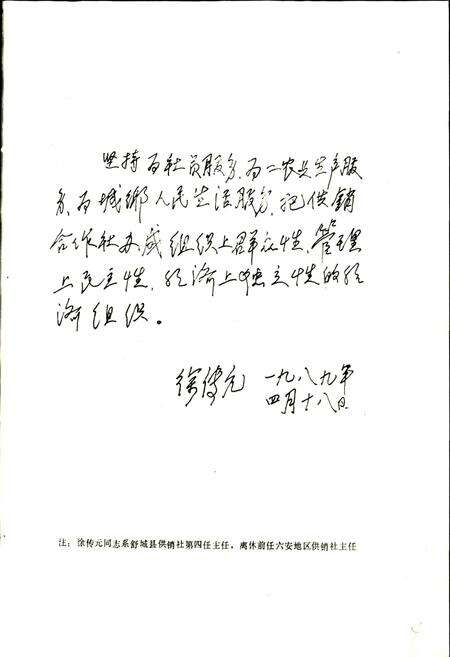 坚持为社员服务、为工农业生产服
务、为城乡人民生活服务,把供销
合作社办成组织上群众性、管理
上民主性,经济上独立性的经
济组织。
徐传元 一九八九年
四月十八日
注:徐传元同志系舒城县供销社第四任主任,离休前任六安地区供销社主任